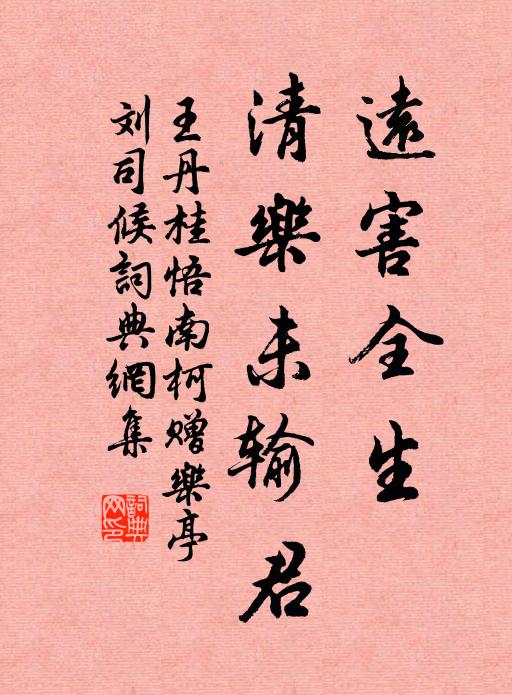 遠害全生
清樂未输君
王丹桂悟南柯赠樂亭
刘司候詞典網集
詞典网印